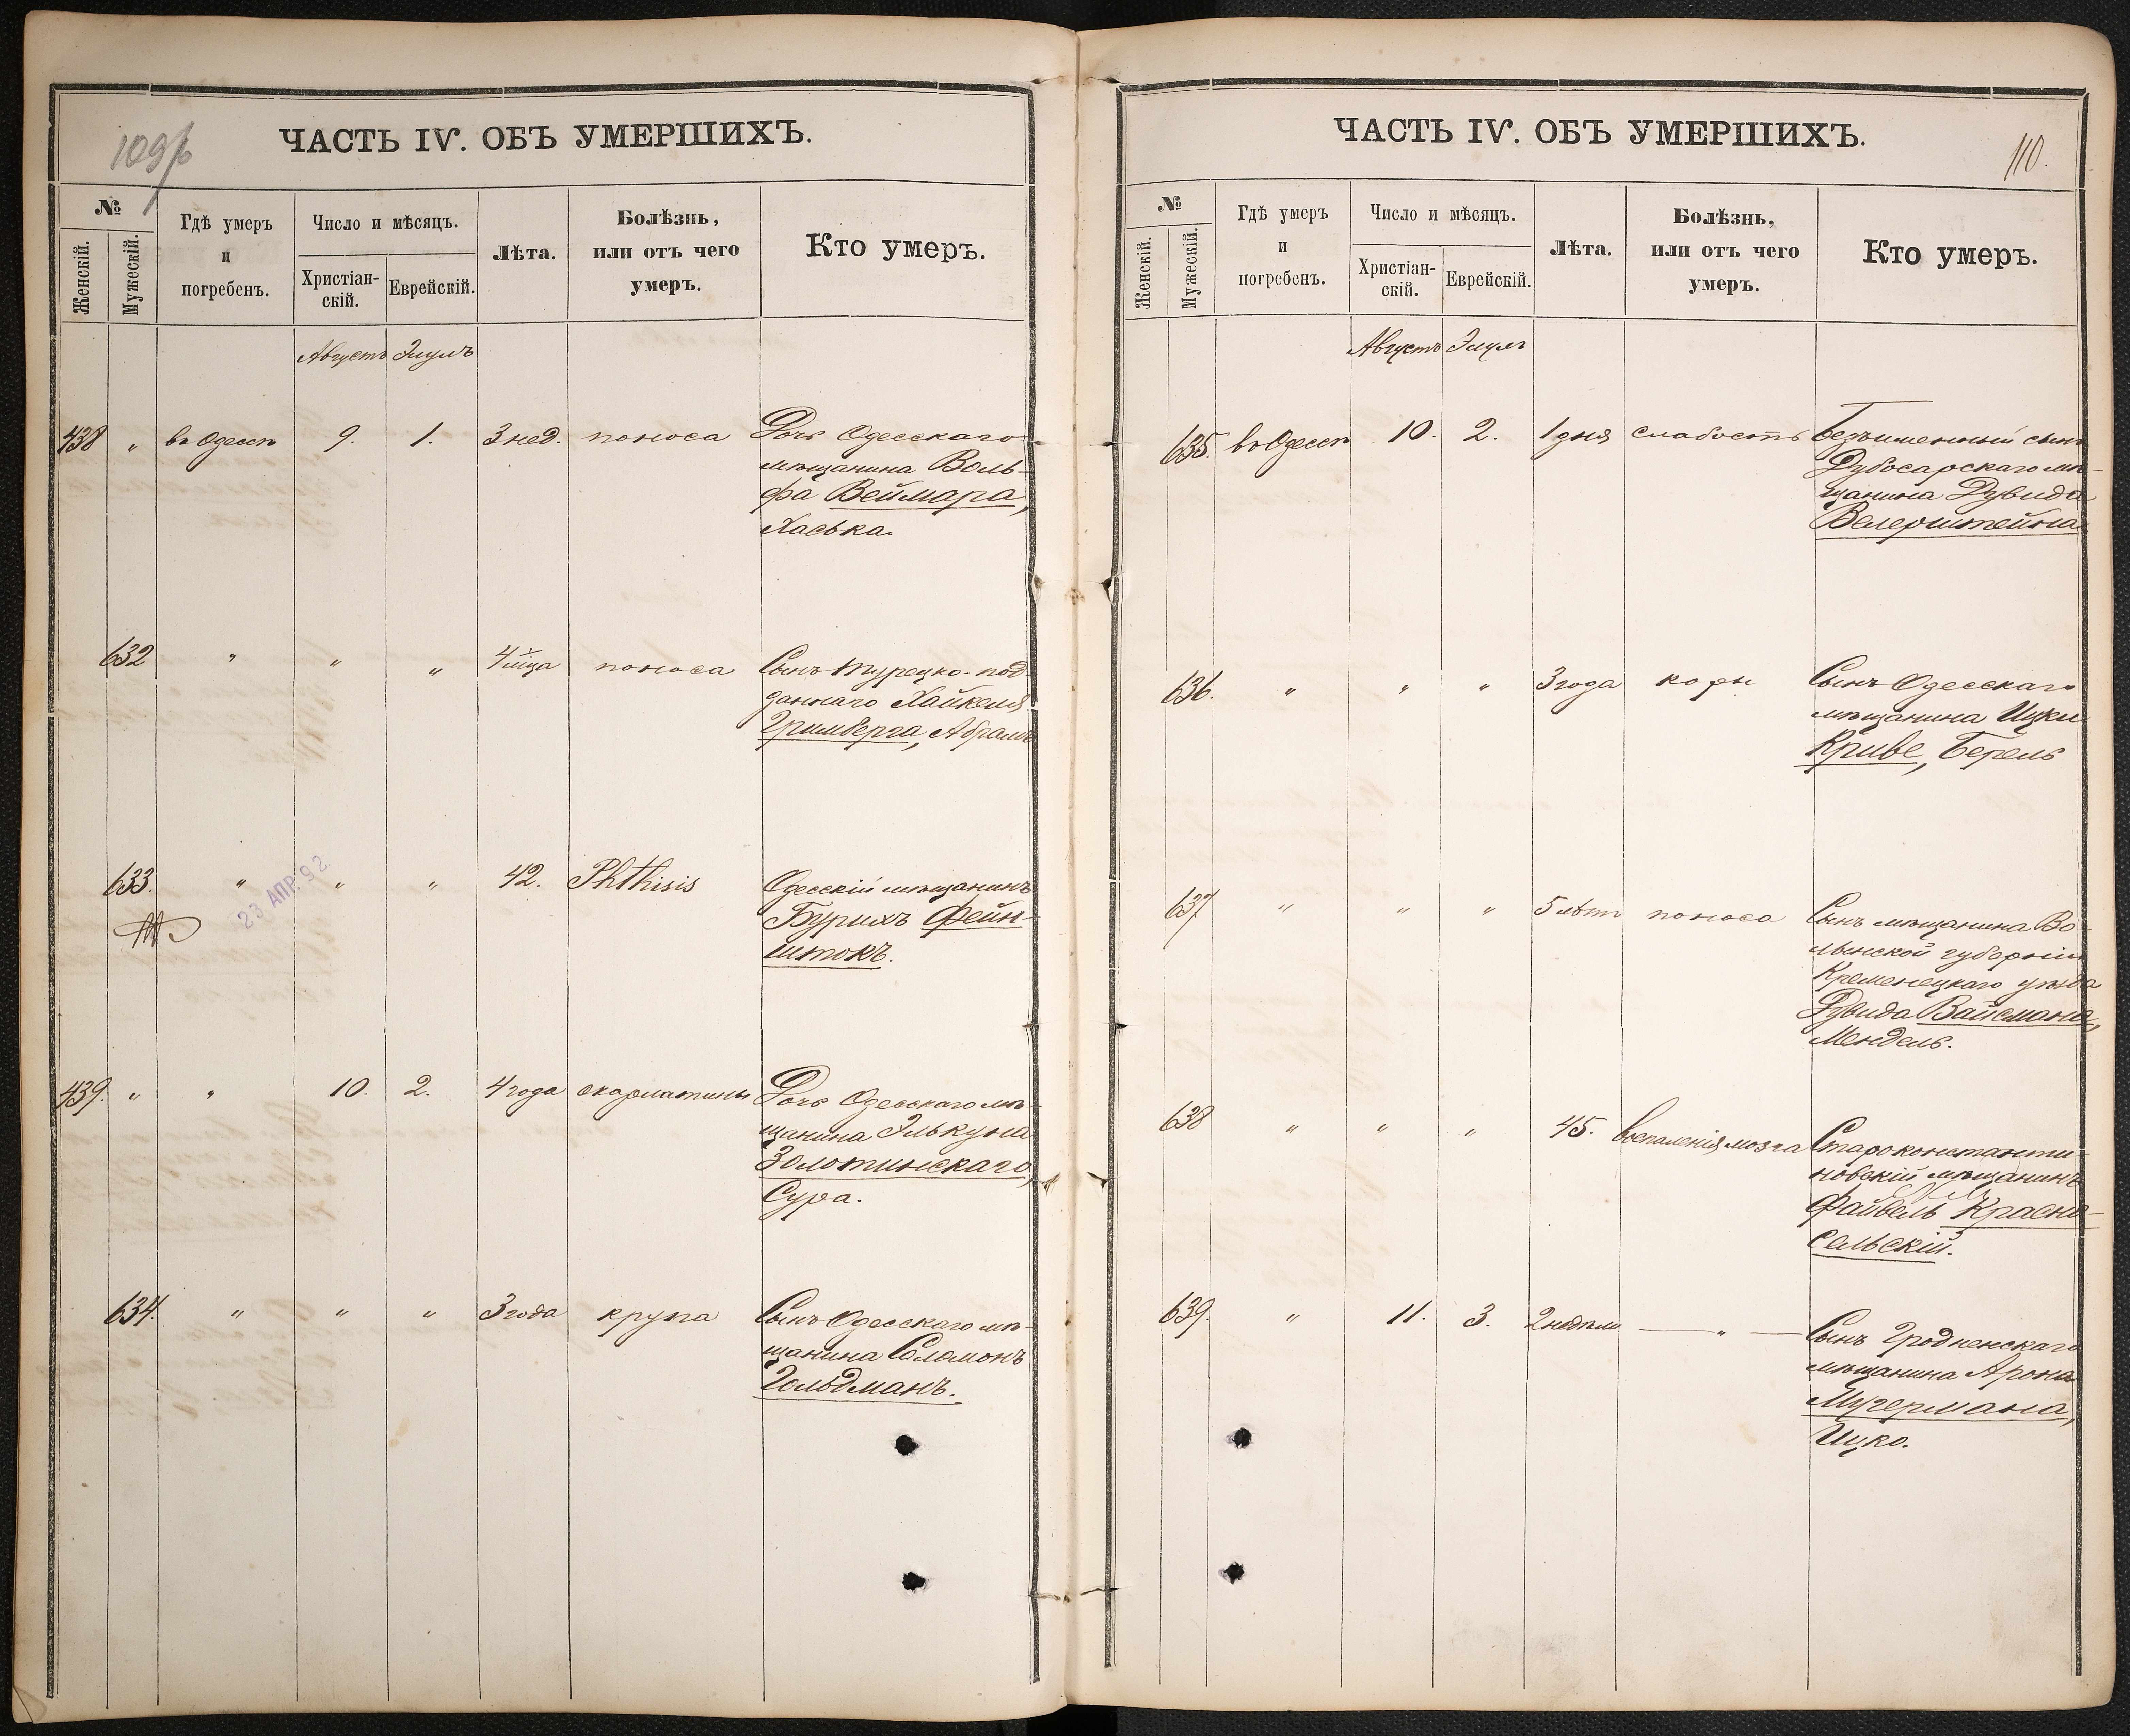 109/b
ЧАСТЬ IV. ОБЪ УМЕРШИХЪ.
№
Женскій.
Мужескій.
Гдѣ умеръ
и
погребенъ.
Число и мѣсяцъ.
Христіан-
скій.
Еврейскій.
Лѣта.
Болѣзнь,
или отъ чего
умеръ.
Кто умеръ.
Августъ Элулъ
438 " въ Одессѣ 9. 1. 3 нед. поноса Дочь Одесскаго
мѣщанина Воль-
фа Веймара,
Хаська.
632 " " " 4 м̆ца поноса Сынъ турецко-под-
даннаго Хайкеля
Гримберга, Абрамъ
633. " " " 42. Phthisis Одесскій мѣщанинъ
Бурихъ Фейн-
штокъ.
23 АПР 92
439. " " 10. 2. 4 года скарлатины Дочь Одесскаго мѣ-
щанина Элькуна
Золотинскаго,
Сура.
634. " " " 3 года крупа Сынъ Одесскаго мѣ-
щанина Соломонъ
Гольдманъ.
110.
ЧАСТЬ IV. ОБЪ УМЕРШИХЪ.
№
Женскій.
Мужескій.
Гдѣ умеръ
и
погребенъ.
Число и мѣсяцъ.
Христіан-
скій.
Еврейскій.
Лѣта.
Болѣзнь,
или отъ чего
умеръ.
Кто умеръ.
Августъ Элулъ
635. въ Одессѣ 10. 2. 1 дня слабость Безъименный сынъ
Дубосарскаго мѣ-
щанина Дувида
Велерштейна
636. " " " 3 года коры Сынъ Одесскаго
мѣщанина Ицки
Криве, Берель
637 " " " 5 лѣтъ поноса Сынъ мѣщанина Во-
лынской губерніи
Кременецкаго уѣзда
Дувида Вайсмана,
Мендель.
638 " " " 45. воспаленія мозга Староконстанти-
новскій мѣщанинъ
Файвель Красно-
сельскій.
639. " 11. 3. 2 недѣли — " — Сынъ Гродненскаго
мѣщанина Арона
Мучермана,
Ицко.